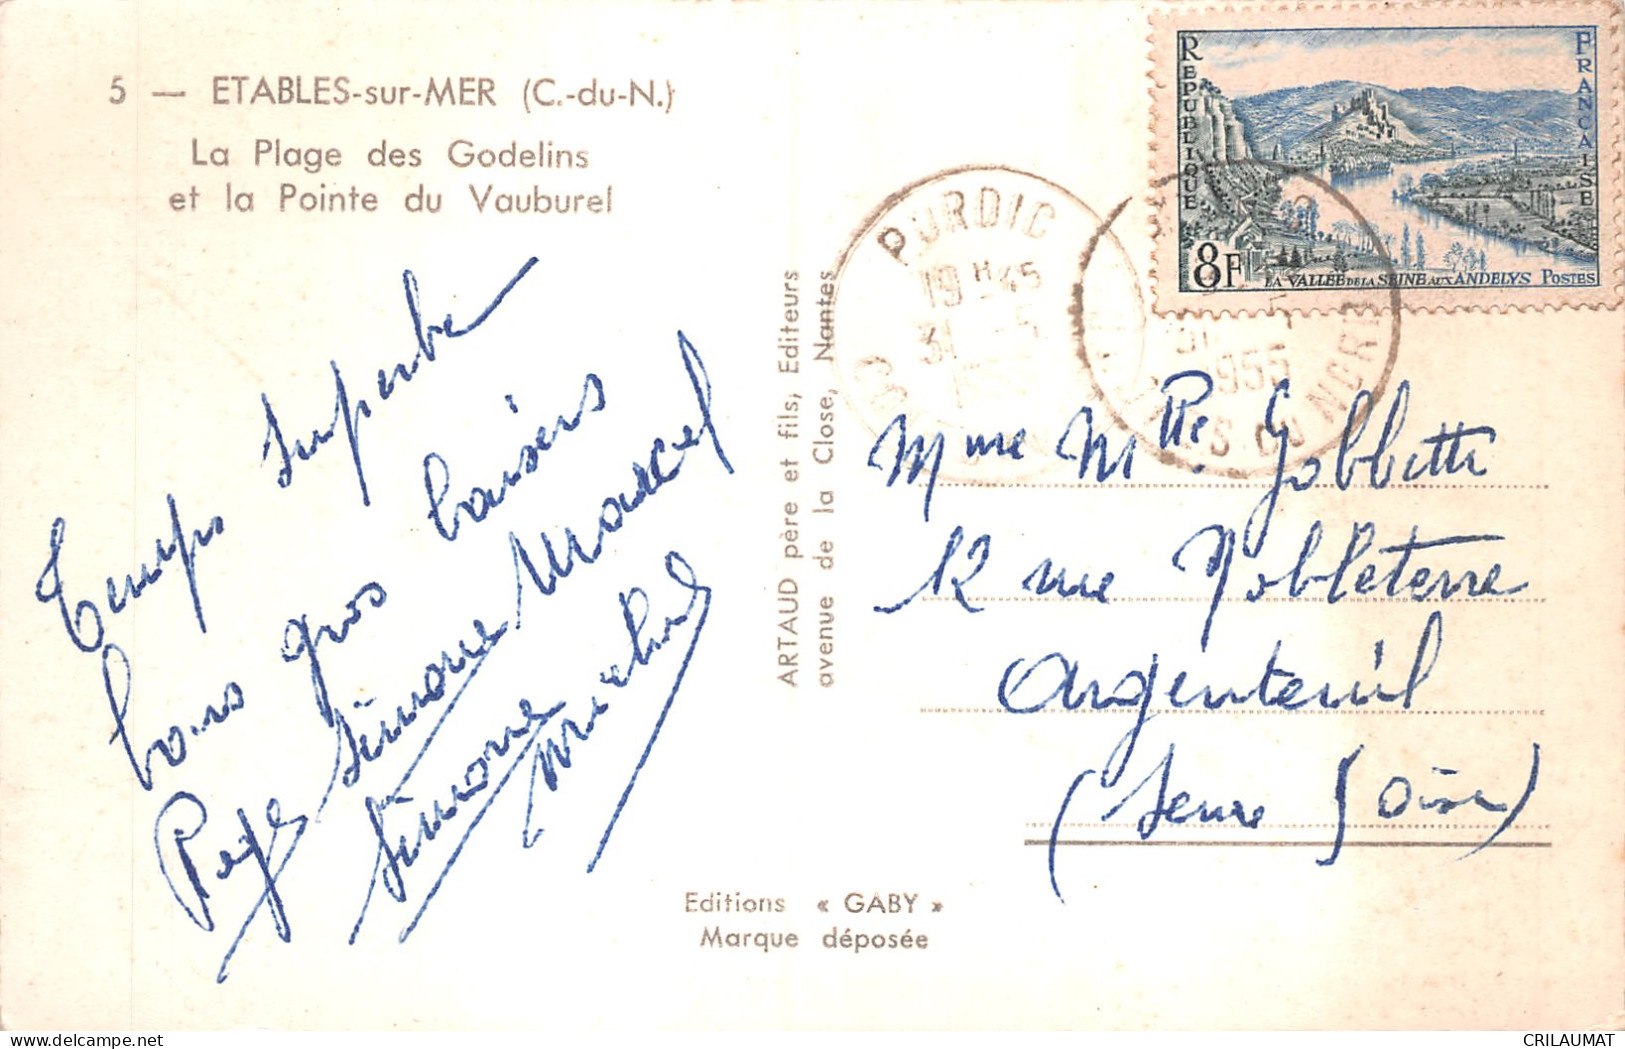 5 — ETABLES-sur-MER (C.-du-N.)
La Plage des Godelins
et la Pointe du Vauburel
Temps superbe
bons gros baisers
Simone Marcel
Simone Michel
ARTAUD père et fils, Editeurs
avenue de la Close, Nantes
Editions « GABY »
Marque déposée
REPUBLIQUE FRANCAISE
8F
LA VALLÉE DE LA SEINE AUX ANDELYS POSTES
PORDIC
19 H 45
31 -5
31
1955
DU NORD
Mme M Gobbette
12 rue Nobleterre
Argenteuil
(Seine & Oise)
CRILAUMAT